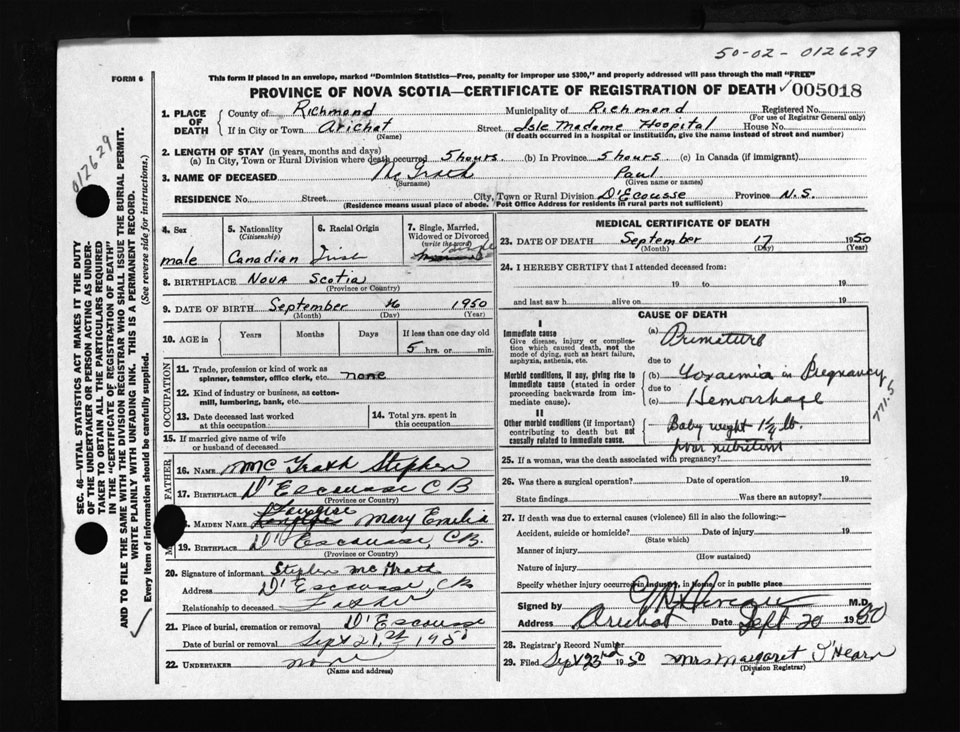 50-02-012629
FORM 6
This form if placed in an envelope, marked "Dominion Statistics—Free, penalty for improper use $300," and properly addressed will pass through the mail "FREE"
PROVINCE OF NOVA SCOTIA—CERTIFICATE OF REGISTRATION OF DEATH ✓005018
1. PLACE OF DEATH
County of Richmond Municipality of Richmond Registered No.
(For use of Registrar General only)
If in City or Town Arichat Street Isle Madame Hospital House No.
(Name) (If death occurred in a hospital or institution, give its name instead of street and number)
2. LENGTH OF STAY (in years, months and days)
(a) In City, Town or Rural Division where death occurred 5 hours (b) In Province 5 hours (c) In Canada (if immigrant)
3. NAME OF DECEASED Mc Grath Paul
(Surname) (Given name or names)
RESIDENCE No. Street City, Town or Rural Division D'Ecousse Province N.S.
(Residence means usual place of abode. Post Office Address for residents in rural parts not sufficient)
4. Sex
male
5. Nationality
(Citizenship)
Canadian
6. Racial Origin
Irish
7. Single, Married, Widowed or Divorced
(write the word)
Single
8. BIRTHPLACE Nova Scotia
(Province or Country)
9. DATE OF BIRTH September 16 1950
(Month) (Day) (Year)
10. AGE in Years Months Days If less than one day old
5 hrs. or min.
OCCUPATION
11. Trade, profession or kind of work as spinner, teamster, office clerk, etc. none
12. Kind of industry or business, as cotton-mill, lumbering, bank, etc.
13. Date deceased last worked at this occupation
14. Total yrs. spent in this occupation
15. If married give name of wife or husband of deceased
FATHER
16. Name Mc Grath Stephen
17. Birthplace D'Escousse CB
(Province or Country)
Maiden Name Mary Emelia
19. Birthplace D'Escousse, CB.
(Province or Country)
20. Signature of informant Stephen Mc Grath
Address D'Escousse CB
Relationship to deceased Father
21. Place of burial, cremation or removal D'Escousse
Date of burial or removal Sept 21st 1950
22. UNDERTAKER none
(Name and address)
MEDICAL CERTIFICATE OF DEATH
23. DATE OF DEATH September 17 1950
(Month) (Day) (Year)
24. I HEREBY CERTIFY that I attended deceased from:
19 to 19
and last saw h alive on 19
CAUSE OF DEATH
I
Immediate cause
Give disease, injury or complication which caused death, not the mode of dying, such as heart failure, asphyxia, asthenia, etc.
(a) Premature
due to
Morbid conditions, if any, giving rise to immediate cause (stated in order proceeding backwards from immediate cause).
(b) Toxaemia in Pregnancy
due to
(c) Hemorrhage
771.5
II
Other morbid conditions (if important) contributing to death but not causally related to immediate cause.
Baby weight 1½ lb.
Poor nutrition
25. If a woman, was the death associated with pregnancy?
26. Was there a surgical operation? Date of operation 19
State findings Was there an autopsy?
27. If death was due to external causes (violence) fill in also the following:—
Accident, suicide or homicide? Date of injury 19
(State which)
Manner of injury
(How sustained)
Nature of injury
Specify whether injury occurred in industry, in home, or in public place
Signed by M.D.
Address Arichat Date Sept 20 1950
28. Registrar's Record Number
29. Filed Sept 23rd 1950 Mrs Margaret O'Hearn
(Division Registrar)
012629
SEC. 46—VITAL STATISTICS ACT MAKES IT THE DUTY
OF THE UNDERTAKER OR PERSON ACTING AS UNDERTAKER
TO OBTAIN ALL THE PARTICULARS REQUIRED
IN THE "CERTIFICATE OF REGISTRATION OF DEATH"
AND TO FILE THE SAME WITH THE DIVISION REGISTRAR WHO SHALL ISSUE THE BURIAL PERMIT.
WRITE PLAINLY WITH UNFADING INK. THIS IS A PERMANENT RECORD.
Every item of information should be carefully supplied. (See reverse side for instructions.)